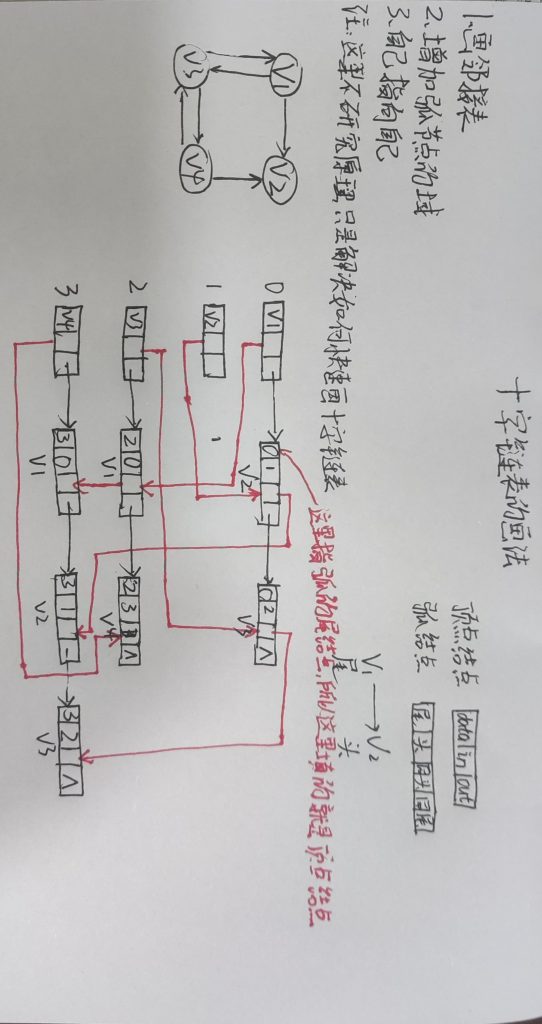 十字链表的画法
1.画邻接表
2、增加弧节点的域
3、自己指向自己
注:这里不研究原理,只是解决如何快速画十字链表
顶点结点 data in out
弧结点 尾 头 同头 同尾
V1 → V2
尾 头
V1 V2
V3 V4
这里指弧的尾结点,所以这里填的就是顶点结点
0 V1 0 1 0 2 Λ
V2 V3
1 V2
2 V3 2 0 2 3 Λ
V1 V4
3 V4 3 0 3 1 3 2 Λ
V1 V2 V3